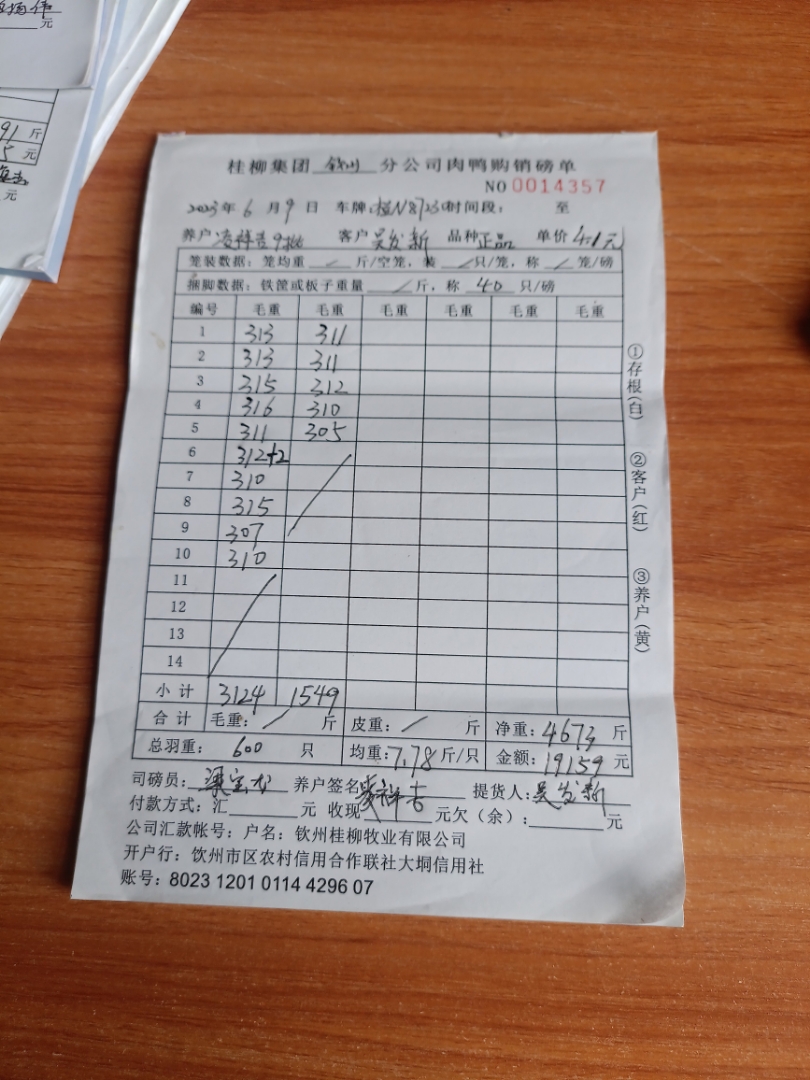 元
91斤
5元
元
桂柳集团 钦州 分公司肉鸭购销磅单
NO 0014357
2023年 6 月 9 日 车牌: 桂N8723 时间段: 至
养户 凌祥吉9批 客户 吴发新 品种 正品 单价 4.1元
笼装数据: 笼均重 / 斤/空笼, 装 / 只/笼, 称 / 笼/磅
捆脚数据: 铁筐或板子重量 / 斤, 称 40 只/磅
编号 毛重 毛重 毛重 毛重 毛重 毛重
1 313 311
2 313 311
3 315 312
4 316 310
5 311 305
6 312+2
7 310
8 315
9 307
10 310
11
12
13
14
小计 3124 1549
合计 毛重: / 斤 皮重: / 斤 净重: 4673 斤
总羽重: 600 只 均重: 7.78 斤/只 金额: 19159 元
司磅员: 梁宝龙 养户签名 凌祥吉 提货人: 吴发新
付款方式: 汇 元 收现 元欠(余): 元
公司汇款帐号: 户名: 钦州桂柳牧业有限公司
开户行: 钦州市区农村信用合作联社大垌信用社
账号: 8023 1201 0114 4296 07
①存根(白)
②客户(红)
③养户(黄)